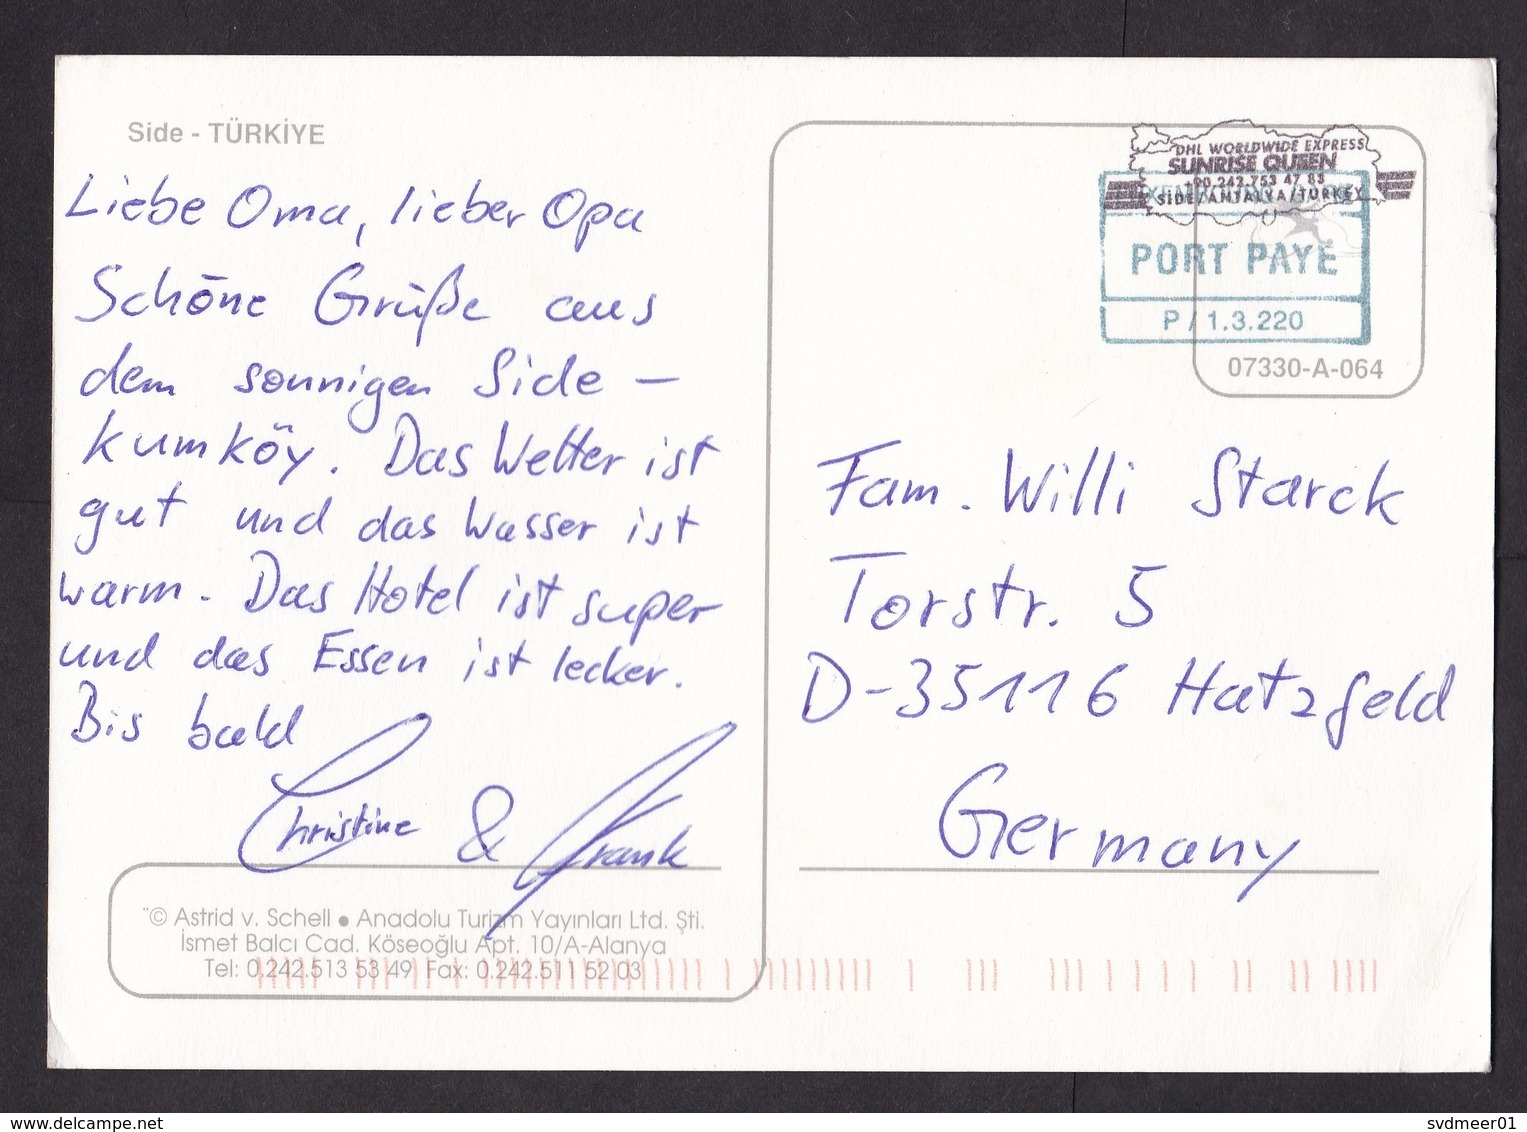 Side - TÜRKİYE
Liebe Oma, lieber Opa
Schöne Grüße aus
dem sonnigen Side –
Kumköy. Das Wetter ist
gut und das Wasser ist
warm. Das Hotel ist super
und das Essen ist lecker.
Bis bald
Christine & Frank
"© Astrid v. Schell • Anadolu Turizm Yayınları Ltd. Şti.
İsmet Balcı Cad. Köseoğlu Apt. 10/A-Alanya
Tel: 0.242.513 53 49 Fax: 0.242.511 52 03
DHL WORLDWIDE EXPRESS
SUNRISE QUEEN
+90.242.753 47 88
SIDE/ANTALYA/TURKEY
PORT PAYE
P / 1.3.220
07330-A-064
Fam. Willi Starck
Torstr. 5
D-35116 Hatzfeld
Germany
svdmeer01